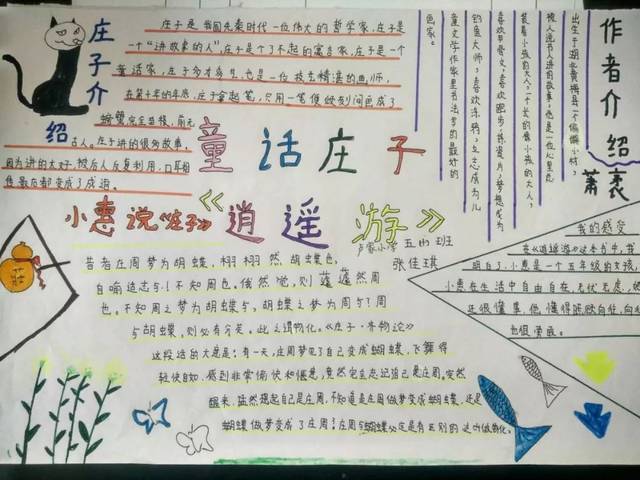 庄子介绍
庄子是我国先秦时代一位伟大的哲学家,庄子是
一个“讲故事的人”,庄子是个了不起的寓言家,庄子是一个
童话家,庄子多才多艺,也是一位技艺精湛的画师,
在第十年的年底,庄子拿起笔,只用一笔便顷刻间画成了
螃蟹完全草稿,前无
古人。庄子讲的很多故事,
因为讲的太好,被后人反复利用,口耳相
传最后都变成了成语。
作者介绍
萧袤
出生于湖北黄梅县一个偏僻小村,
被人说书人讲的故事,也是一位心里总
装着小孩的大人。一个长的像小孩的大人,
喜欢书香文,喜欢跑步,练瓷片,梦想成为
钓鱼大师,喜欢涂鸦,立志成为儿
童文学作家里书法家的最好的
画家。
童话庄子
小惠说《庄子》
《逍遥游》
卢家小学 五(4)班
张佳琪
昔者庄周梦为胡蝶,栩栩然胡蝶也,
自喻适志与!不知周也。俄然觉,则蘧蘧然周
也。不知周之梦为胡蝶与,胡蝶之梦为周与?周
与胡蝶,则必有分矣。此之谓物化。《庄子·齐物论》
这段话的大意是:有一天,庄周梦见了自己变成蝴蝶,飞舞得
轻快自如,感到非常愉快和惬意,竟然完全忘记自己是庄周。突然
醒来,猛然想起自己是庄周,不知道是庄周做梦变成蝴蝶,还是
蝴蝶做梦变成了庄周!庄周与蝴蝶必定是有区别的,这叫做物化。
我的感受
在《逍遥游》这本书中,我
明白了,小惠是一个五年级的女孩,
小惠在生活中自由自在,无忧无虑,她
还很懂事,他懂得
也很勇敢。
莊